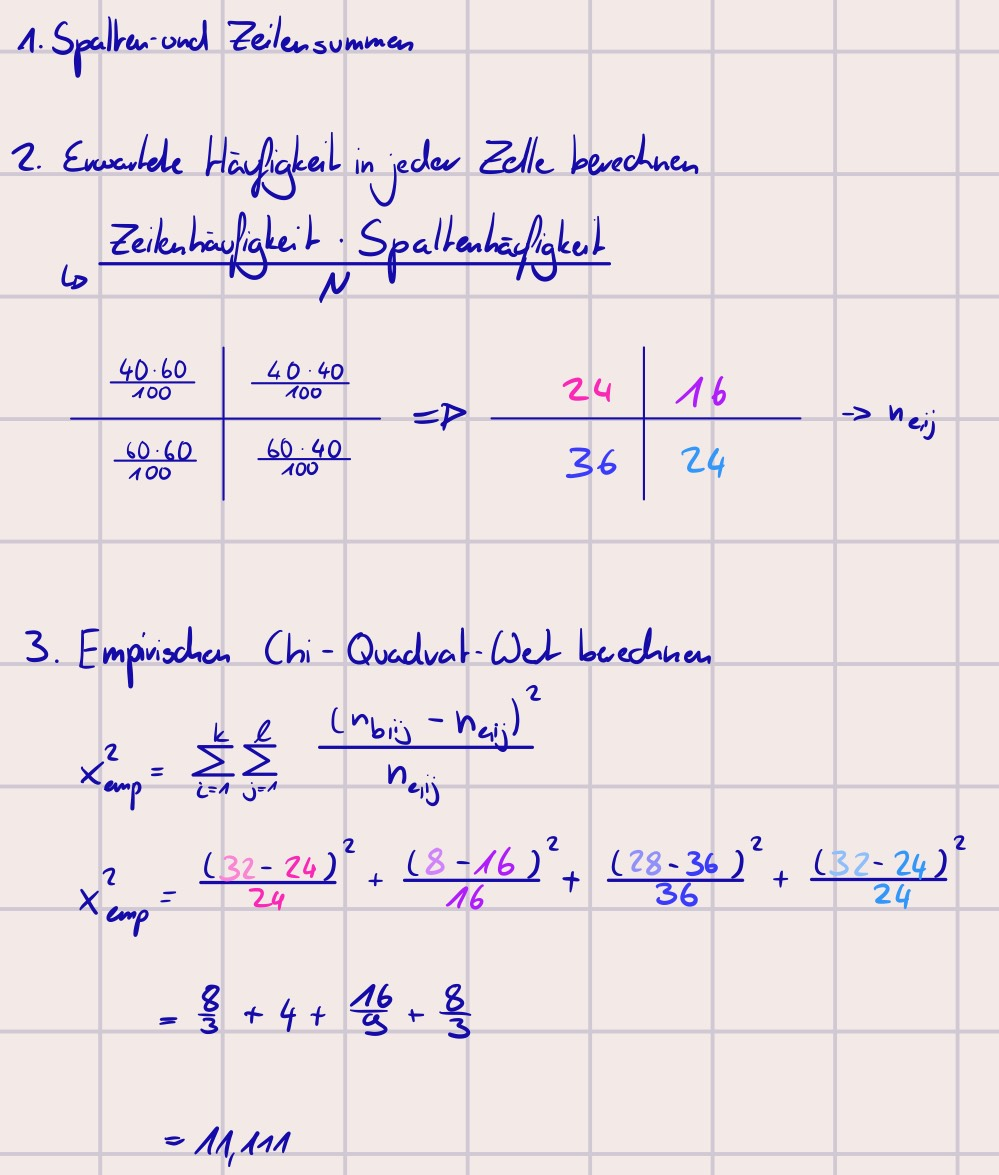 1. Spalten- und Zeilensummen
2. Erwartete Häufigkeit in jeder Zelle berechnen
↳ Zeilenhäufigkeit · Spaltenhäufigkeit / N
40·60/100 | 40·40/100 => 24 | 16 -> n_eij
60·60/100 | 60·40/100 36 | 24
3. Empirischen Chi-Quadrat-Wert berechnen
x²_emp = Σ_{i=1}^{k} Σ_{j=1}^{l} (n_bij - n_eij)² / n_eij
x²_emp = (32-24)²/24 + (8-16)²/16 + (28-36)²/36 + (32-24)²/24
= 8/3 + 4 + 16/9 + 8/3
= 11,111